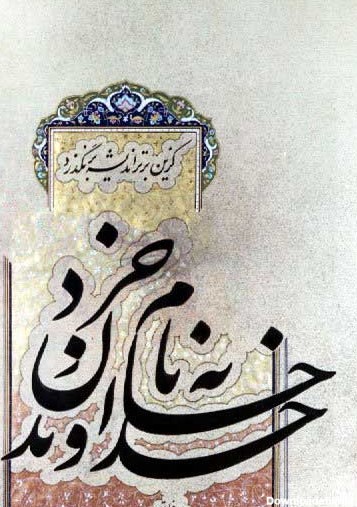 کزین برتر اندیشه برنگذرد
به نام
خداوند
جان و خرد